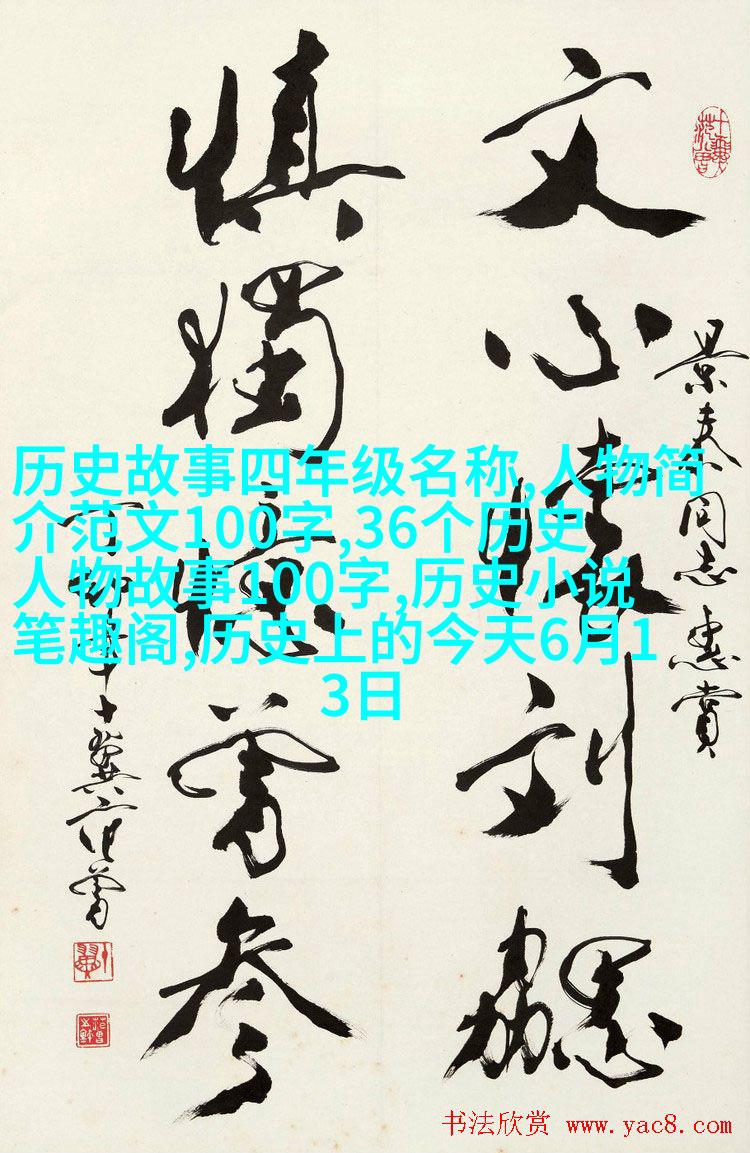 文心怀刘勰
慎独忆曾参
景春同志惠赏
十翼范曾
历史故事四年级名称,人物简
介范文100字,36个历史
人物故事100字,历史小说
笔趣阁,历史上的今天6月1
3日
书法欣赏 www.yac8.com